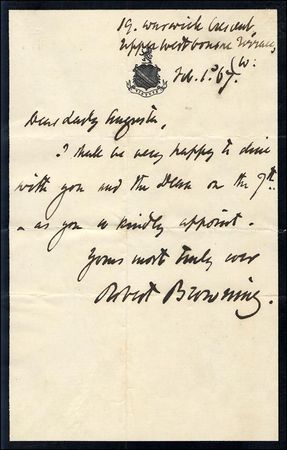 19. Warwick Crescent,
Upper Westbourne Terrace,
W.
Feb. 1. '67.
Dear Lady Augusta,
I shall be very happy to dine
with you and the Dean on the 7th.
- as you so kindly appoint.
Yours most truly ever
Robert Browning.